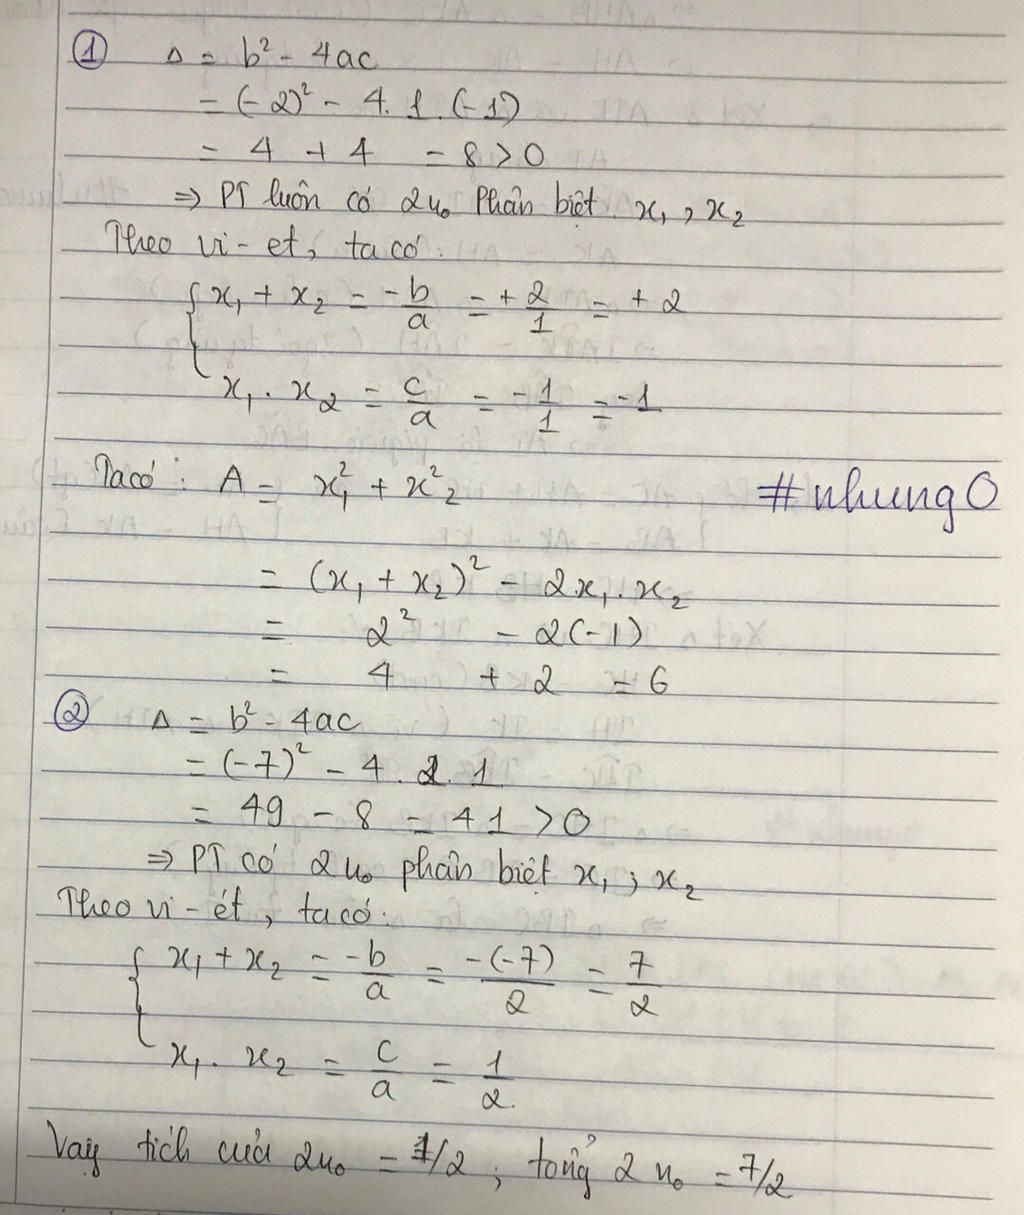 ① Δ = b² - 4ac
= (-2)² - 4.1.(-1)
= 4 + 4 = 8 > 0
⇒ PT luôn có 2 n₀ Phân biệt x₁, x₂
Theo vi-et, ta có:
{ x₁ + x₂ = -b/a = + 2/1 = + 2
x₁. x₂ = c/a = -1/1 = -1
Ta có: A = x₁² + x₂²
#nhung0
= (x₁ + x₂)² - 2x₁.x₂
= 2² - 2(-1)
= 4 + 2 = 6
② Δ = b² - 4ac
= (-7)² - 4.2.1
= 49 - 8 = 41 > 0
⇒ PT có 2 n₀ phân biệt x₁; x₂
Theo vi-ét, ta có:
{ x₁ + x₂ = -b/a = -(-7)/2 = 7/2
x₁. x₂ = c/a = 1/2.
Vậy tích của 2 n₀ = 1/2; tổng 2 n₀ = 7/2